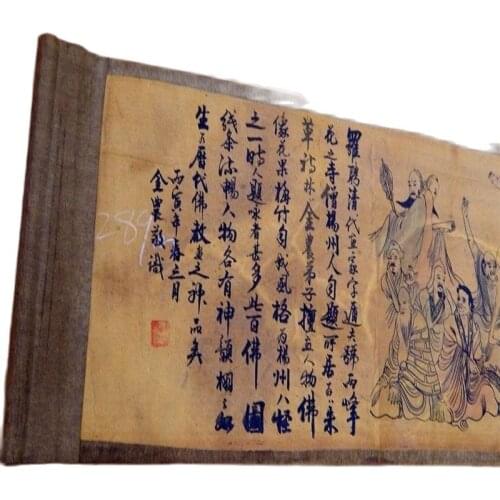 羅聘清代畫家字遁夫號兩峰
花之寺僧揚州人自題所居朱
草詩林金農弟子擅畫人物佛
像花果梅竹自成風格為楊州八怪
之一時人題咏者甚多此百佛圖
线条流暢人物各有神韻栩々如
生乃歷代佛教畫之神品矣
丙寅年春三月
金農敬識